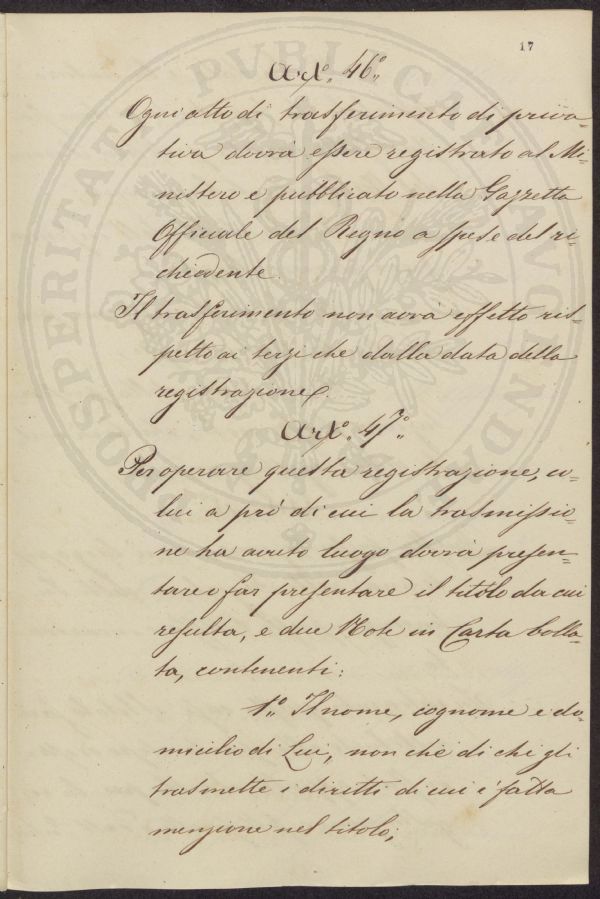 17
Art.º 46º
Ogni atto di trasferimento di priva=
tiva dovrà essere registrato al Mi=
nistero e pubblicato nella Gazzetta
Officiale del Regno a spese del ri=
chiedente.
Il trasferimento non avrà effetto ris=
petto ai terzi che dalla data della
registrazione.
Art.º 47º
Per operare questa registrazione, co=
lui a prò di cui la trasmissio=
ne ha avuto luogo dovrà presen=
tare o far presentare il titolo da cui
resulta, e due Note in Carta bolla=
ta, contenenti:
1º Il nome, cognome e do=
micilio di Lui, non che di chi gli
trasmette i diritti di cui è fatta
menzione nel titolo;
PROSPERITATI PVBLICAE AVGENDAE